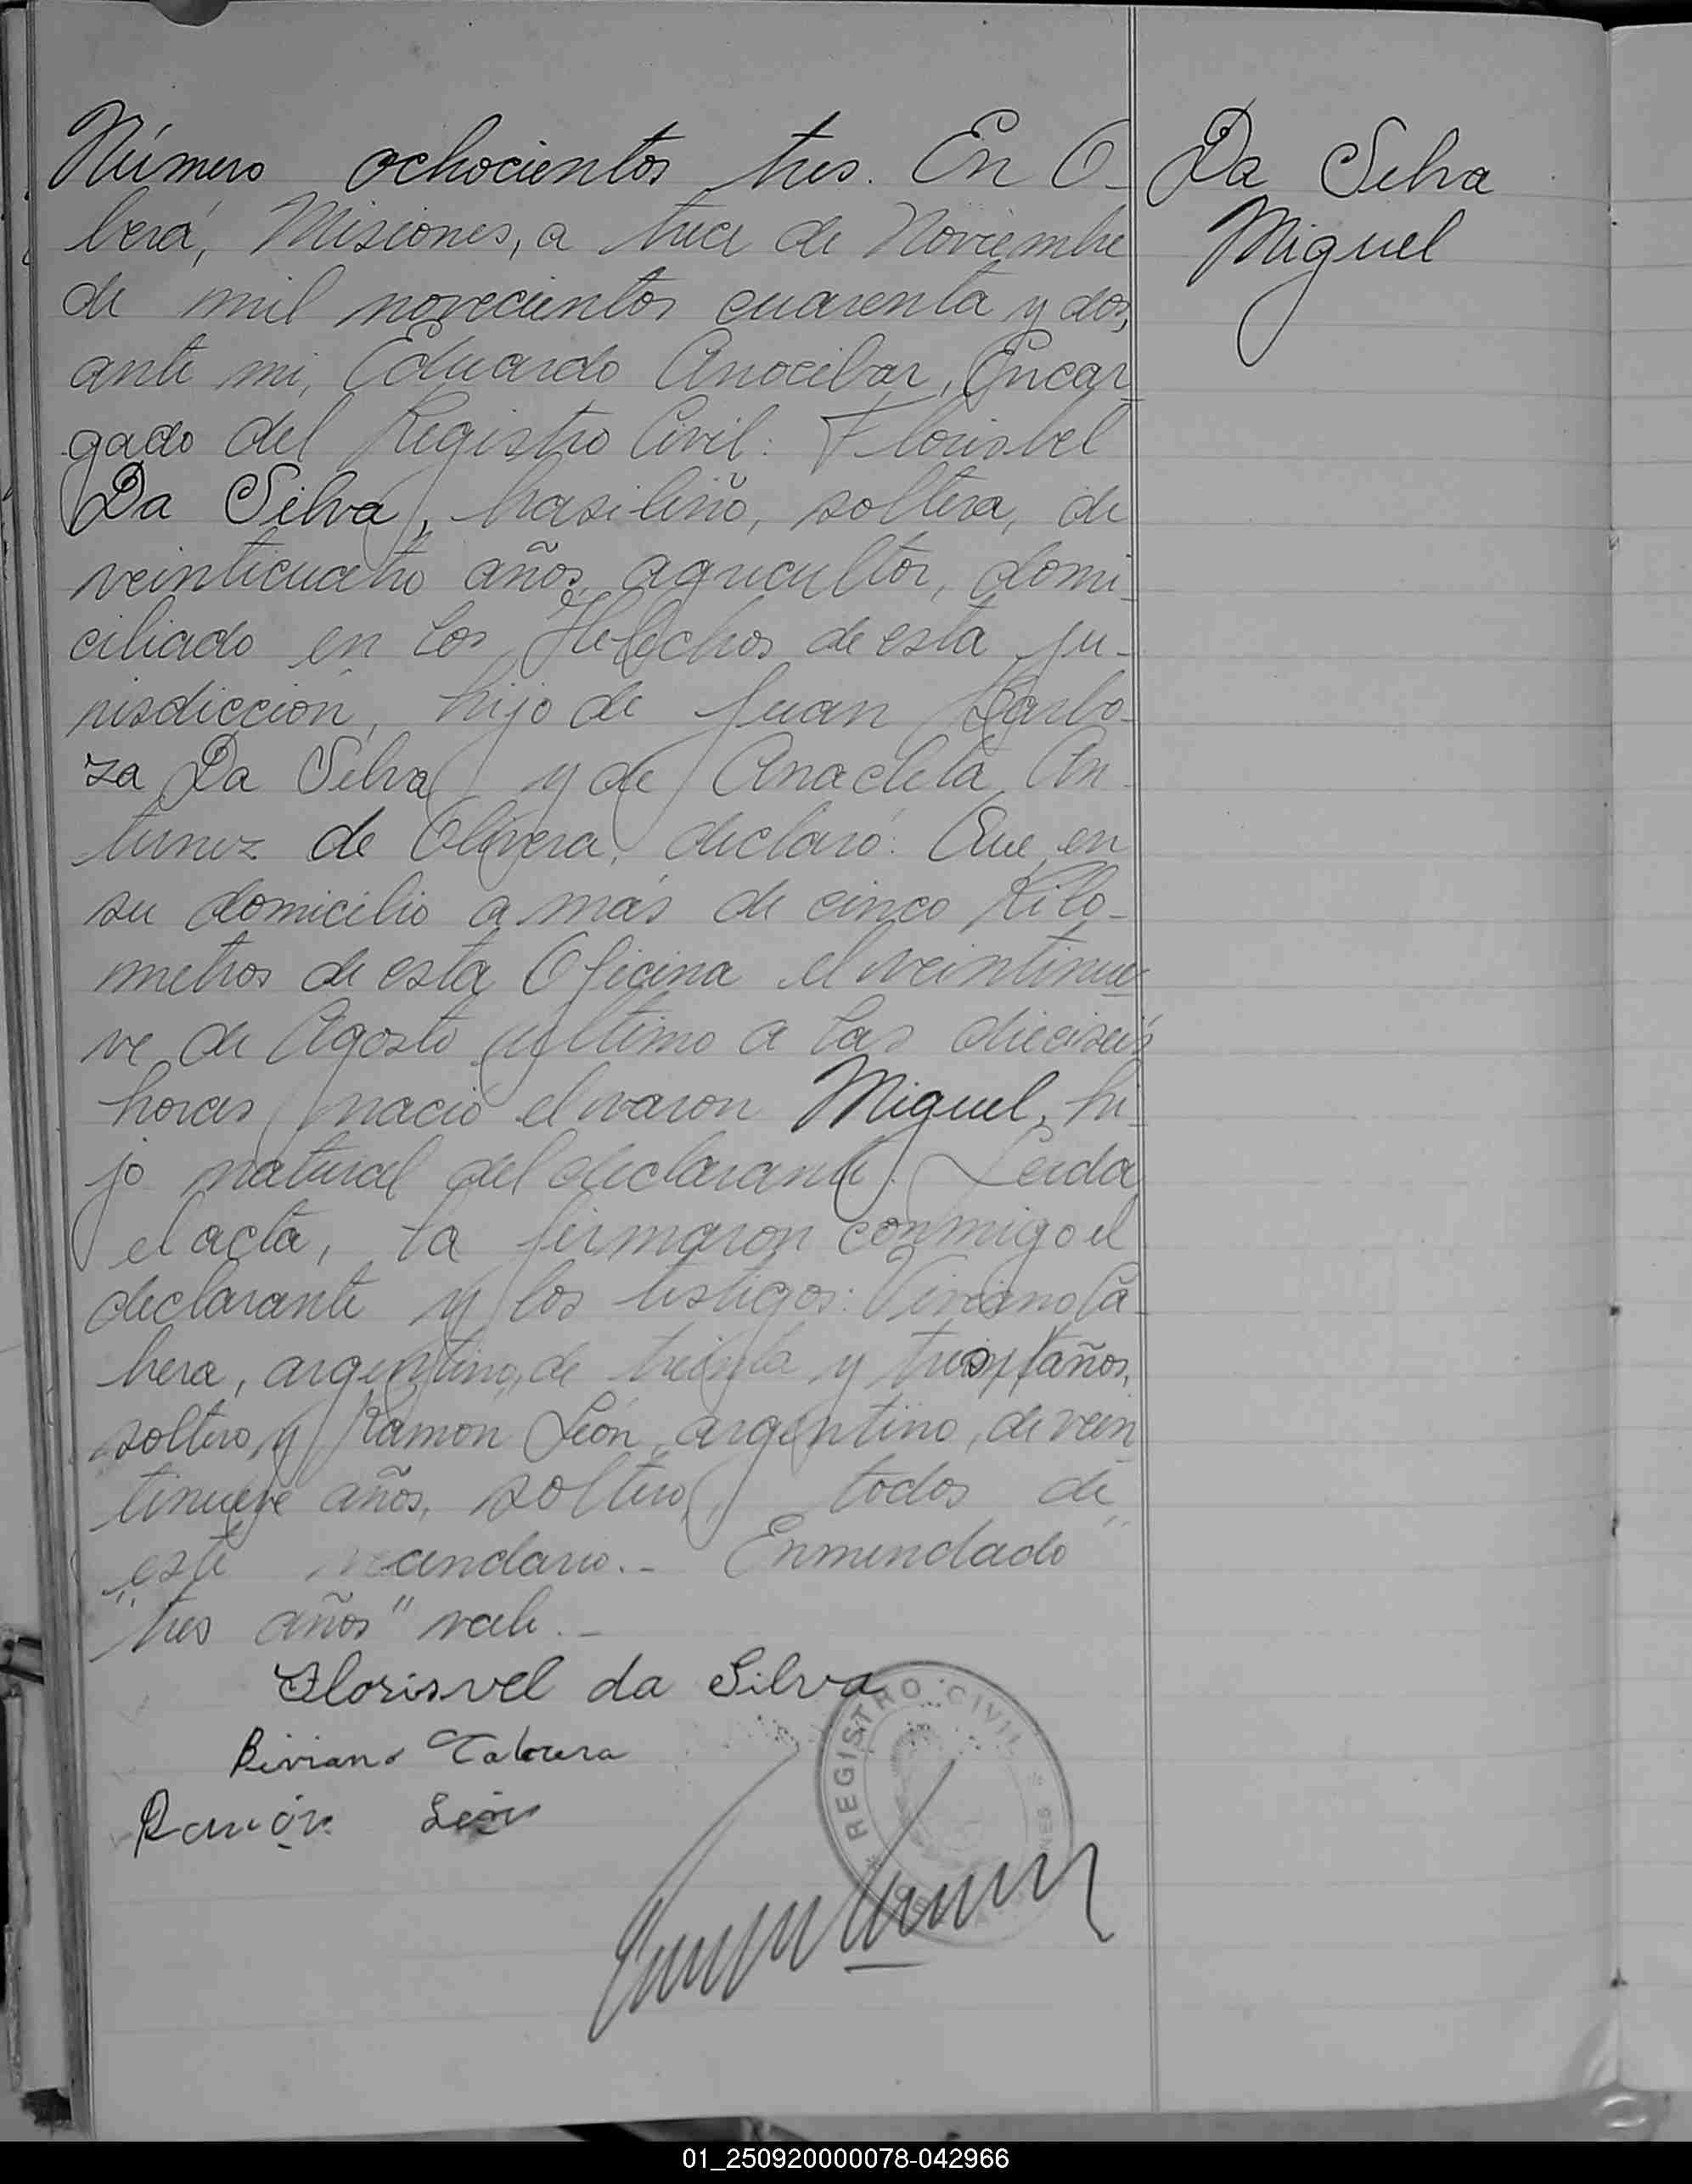 Número ochocientos tres. En O-
berá, Misiones, a trece de Noviembre
de mil novecientos cuarenta y dos,
ante mi, Eduardo Anocibar, Encar-
gado del Registro Civil: Florisbel
Da Silva, brasileño, soltero, de
veinticuatro años, agricultor, domi-
ciliado en Los Helechos de esta ju-
risdicción, hijo de Juan Barbo-
za Da Silva y de Anacleta An-
tunez de Olivera, declaró: Que en
su domicilio a más de cinco Kiló-
metros de esta Oficina el veintinue-
ve de Agosto último a las dieciseis
horas nació el varon Miguel, hi-
jo natural del declarante. Leida
el acta, la firmaron conmigo el
declarante y los testigos: Viviano Ca-
brera, argentino, de treinta y tres años,
soltero y Ramón León, argentino, de vein-
tinueve años, soltero, todos de
este vecindario.- Enmendado
"tres años" vale.-
Florisvel da Silva
Biviano Cabrera
Ramón León
REGISTRO CIVIL
Da Silva
Miguel
01_250920000078-042966